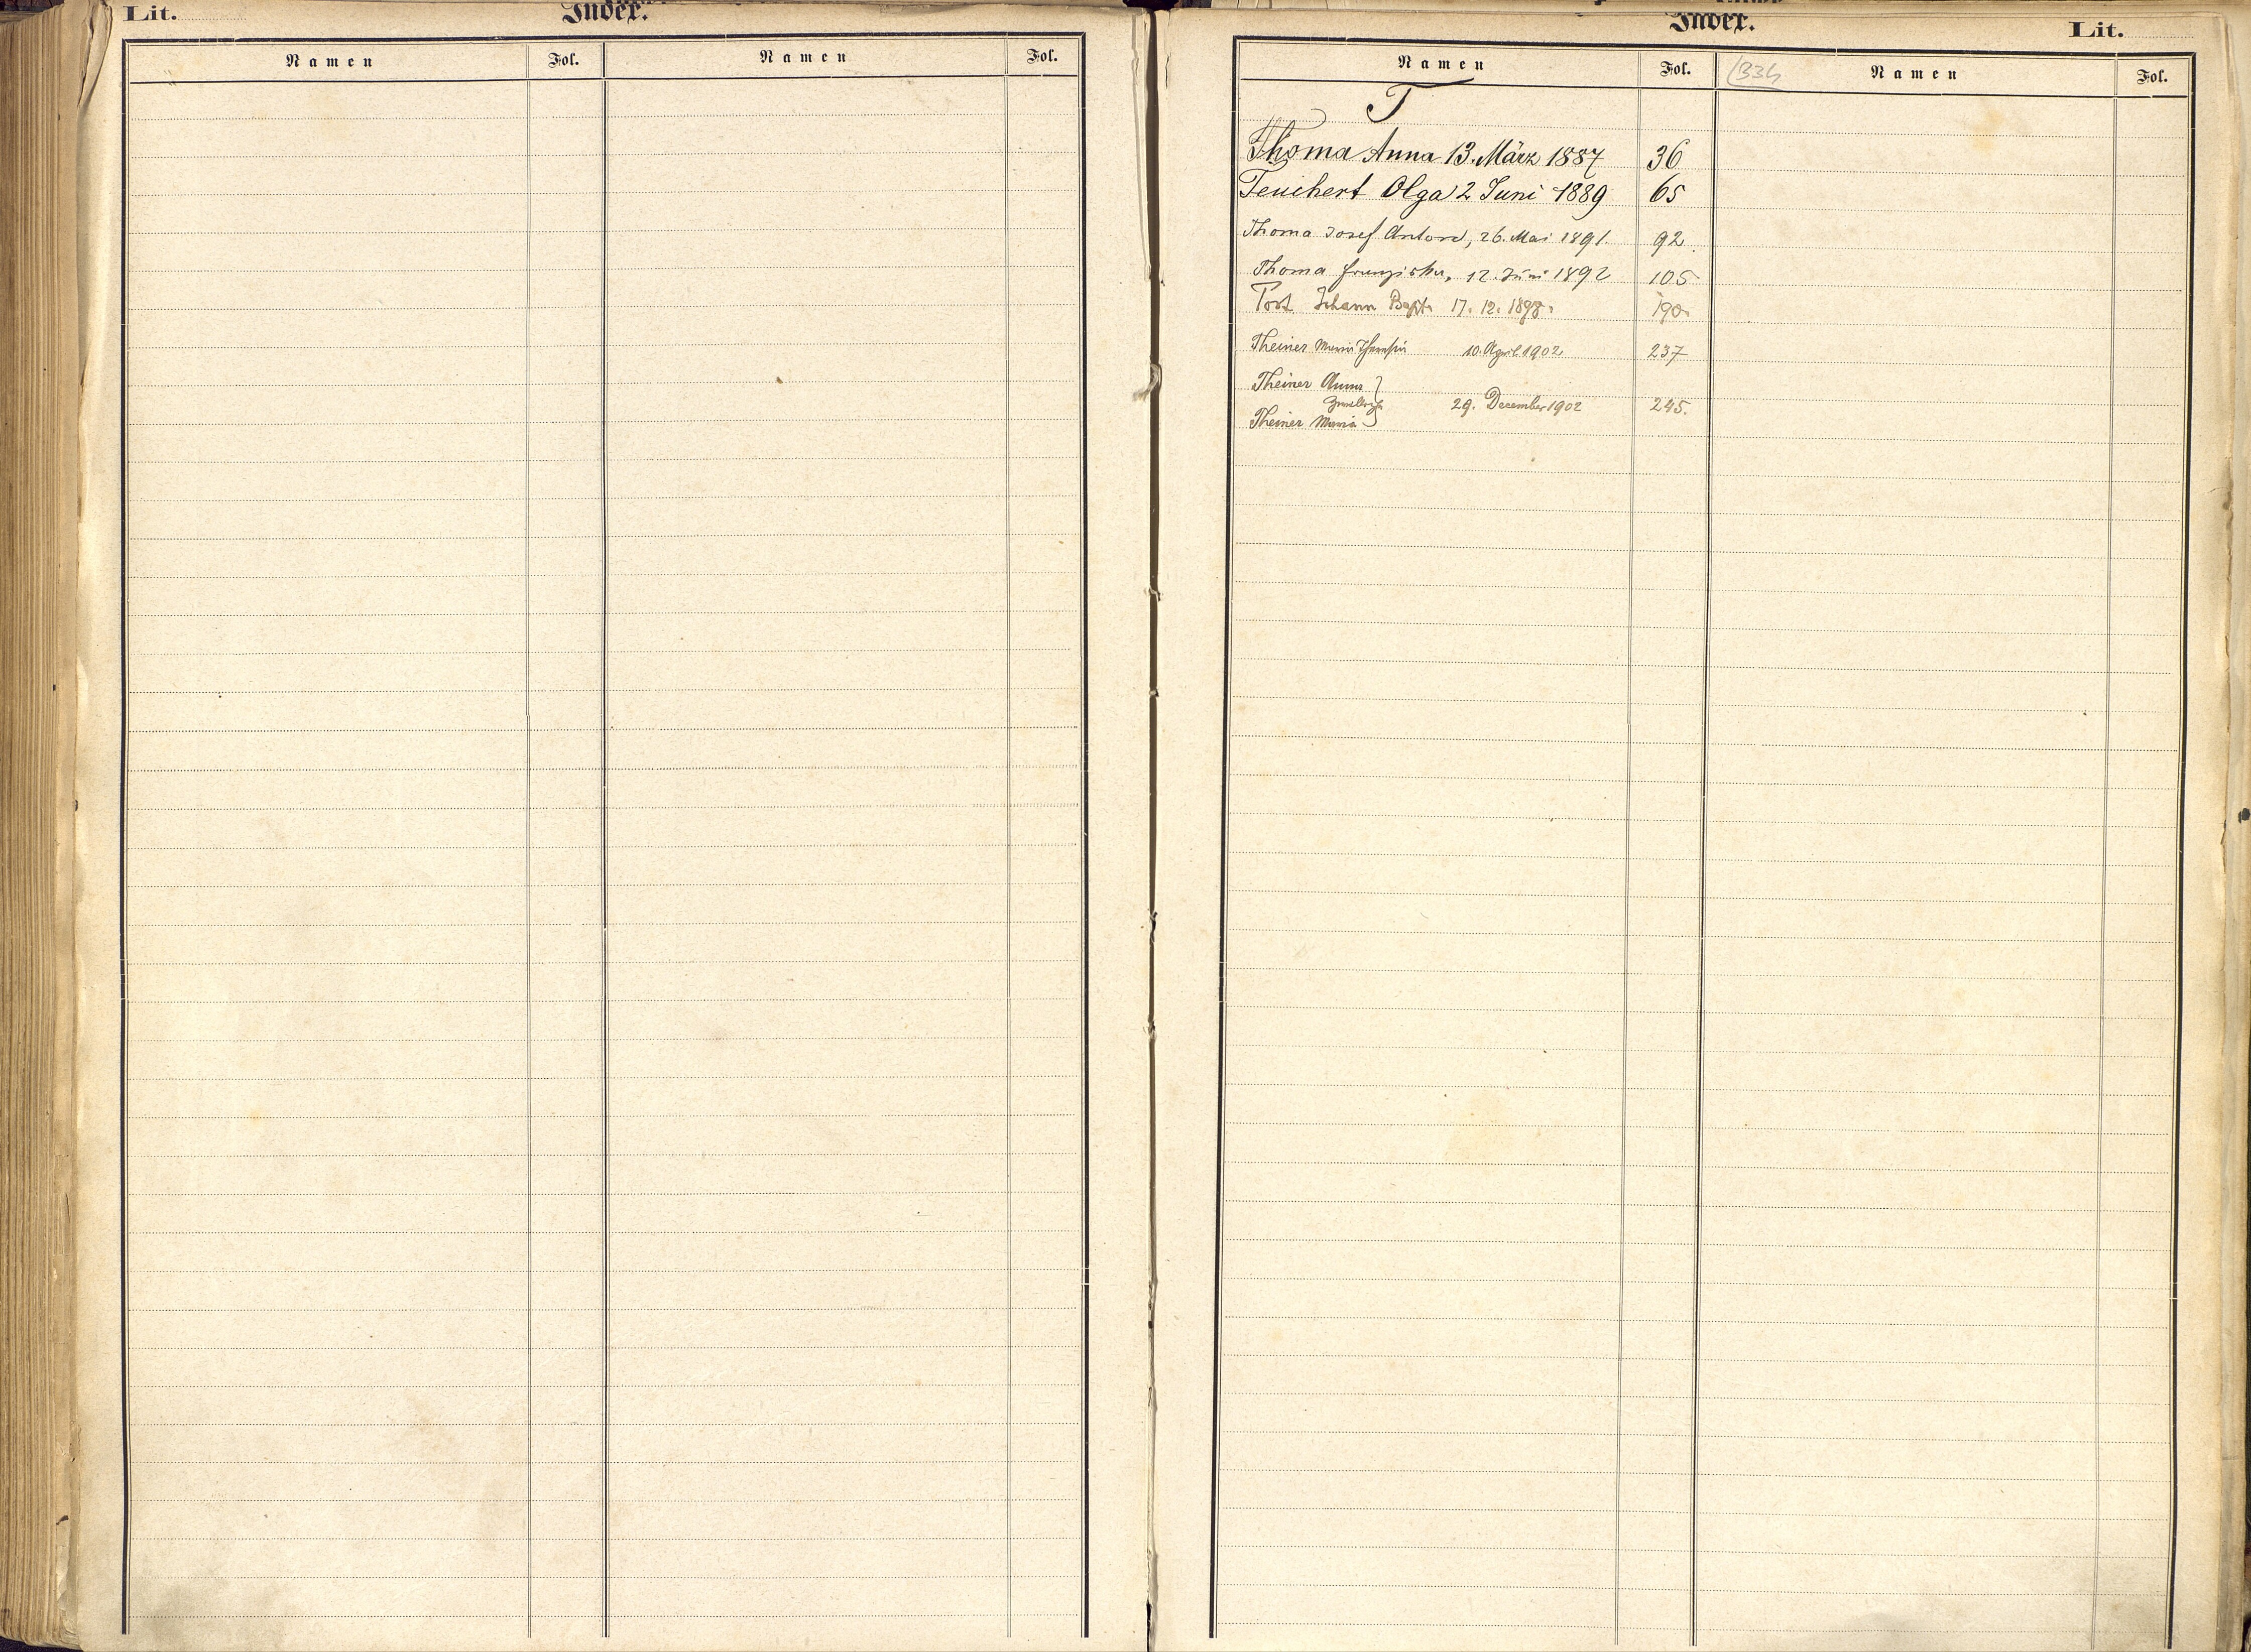 Lit.
Index.
Namen Fol. Namen Fol.
Index.
Lit.
Namen Fol. Namen Fol.
T
Thoma Anna 13. März 1887 36
Teuchert Olga 2 Juni 1889 65
Thoma Josef Anton, 26. Mai 1891. 92.
Thoma Franziska, 12. Juni 1892 105
Johann Bapt. 17. 12. 1898. 190
Theiner Maria Theresia 10. April 1902 237
Theiner Anna
Zwillinge 29. December 1902 245.
Theiner Maria